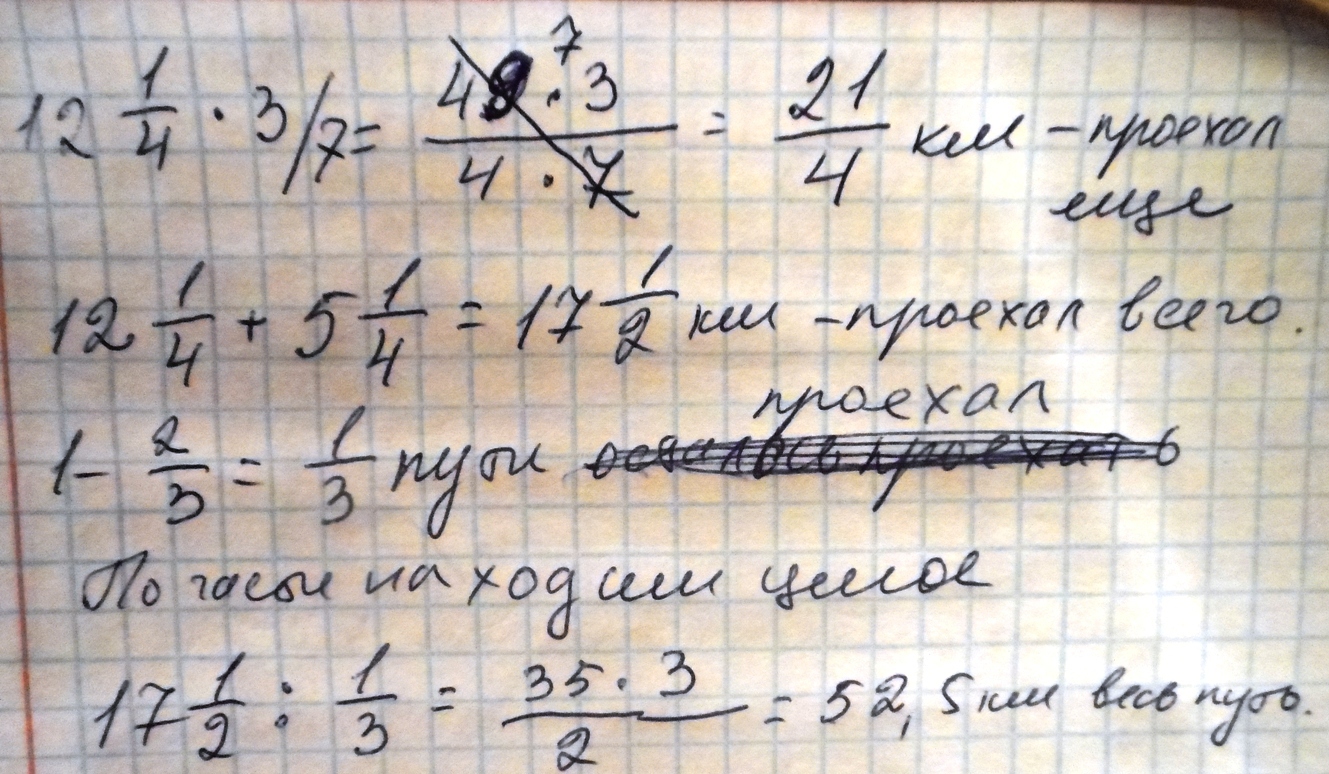 12 1/4 · 3/7 = 49 · 3 / 4 · 7 = 21/4 км – проехал еще
12 1/4 + 5 1/4 = 17 1/2 км – проехал всего.
1 – 2/3 = 1/3 пути проехал осталось проехать
По части находим целое
17 1/2 : 1/3 = 35 · 3 / 2 = 52,5 км весь путь.